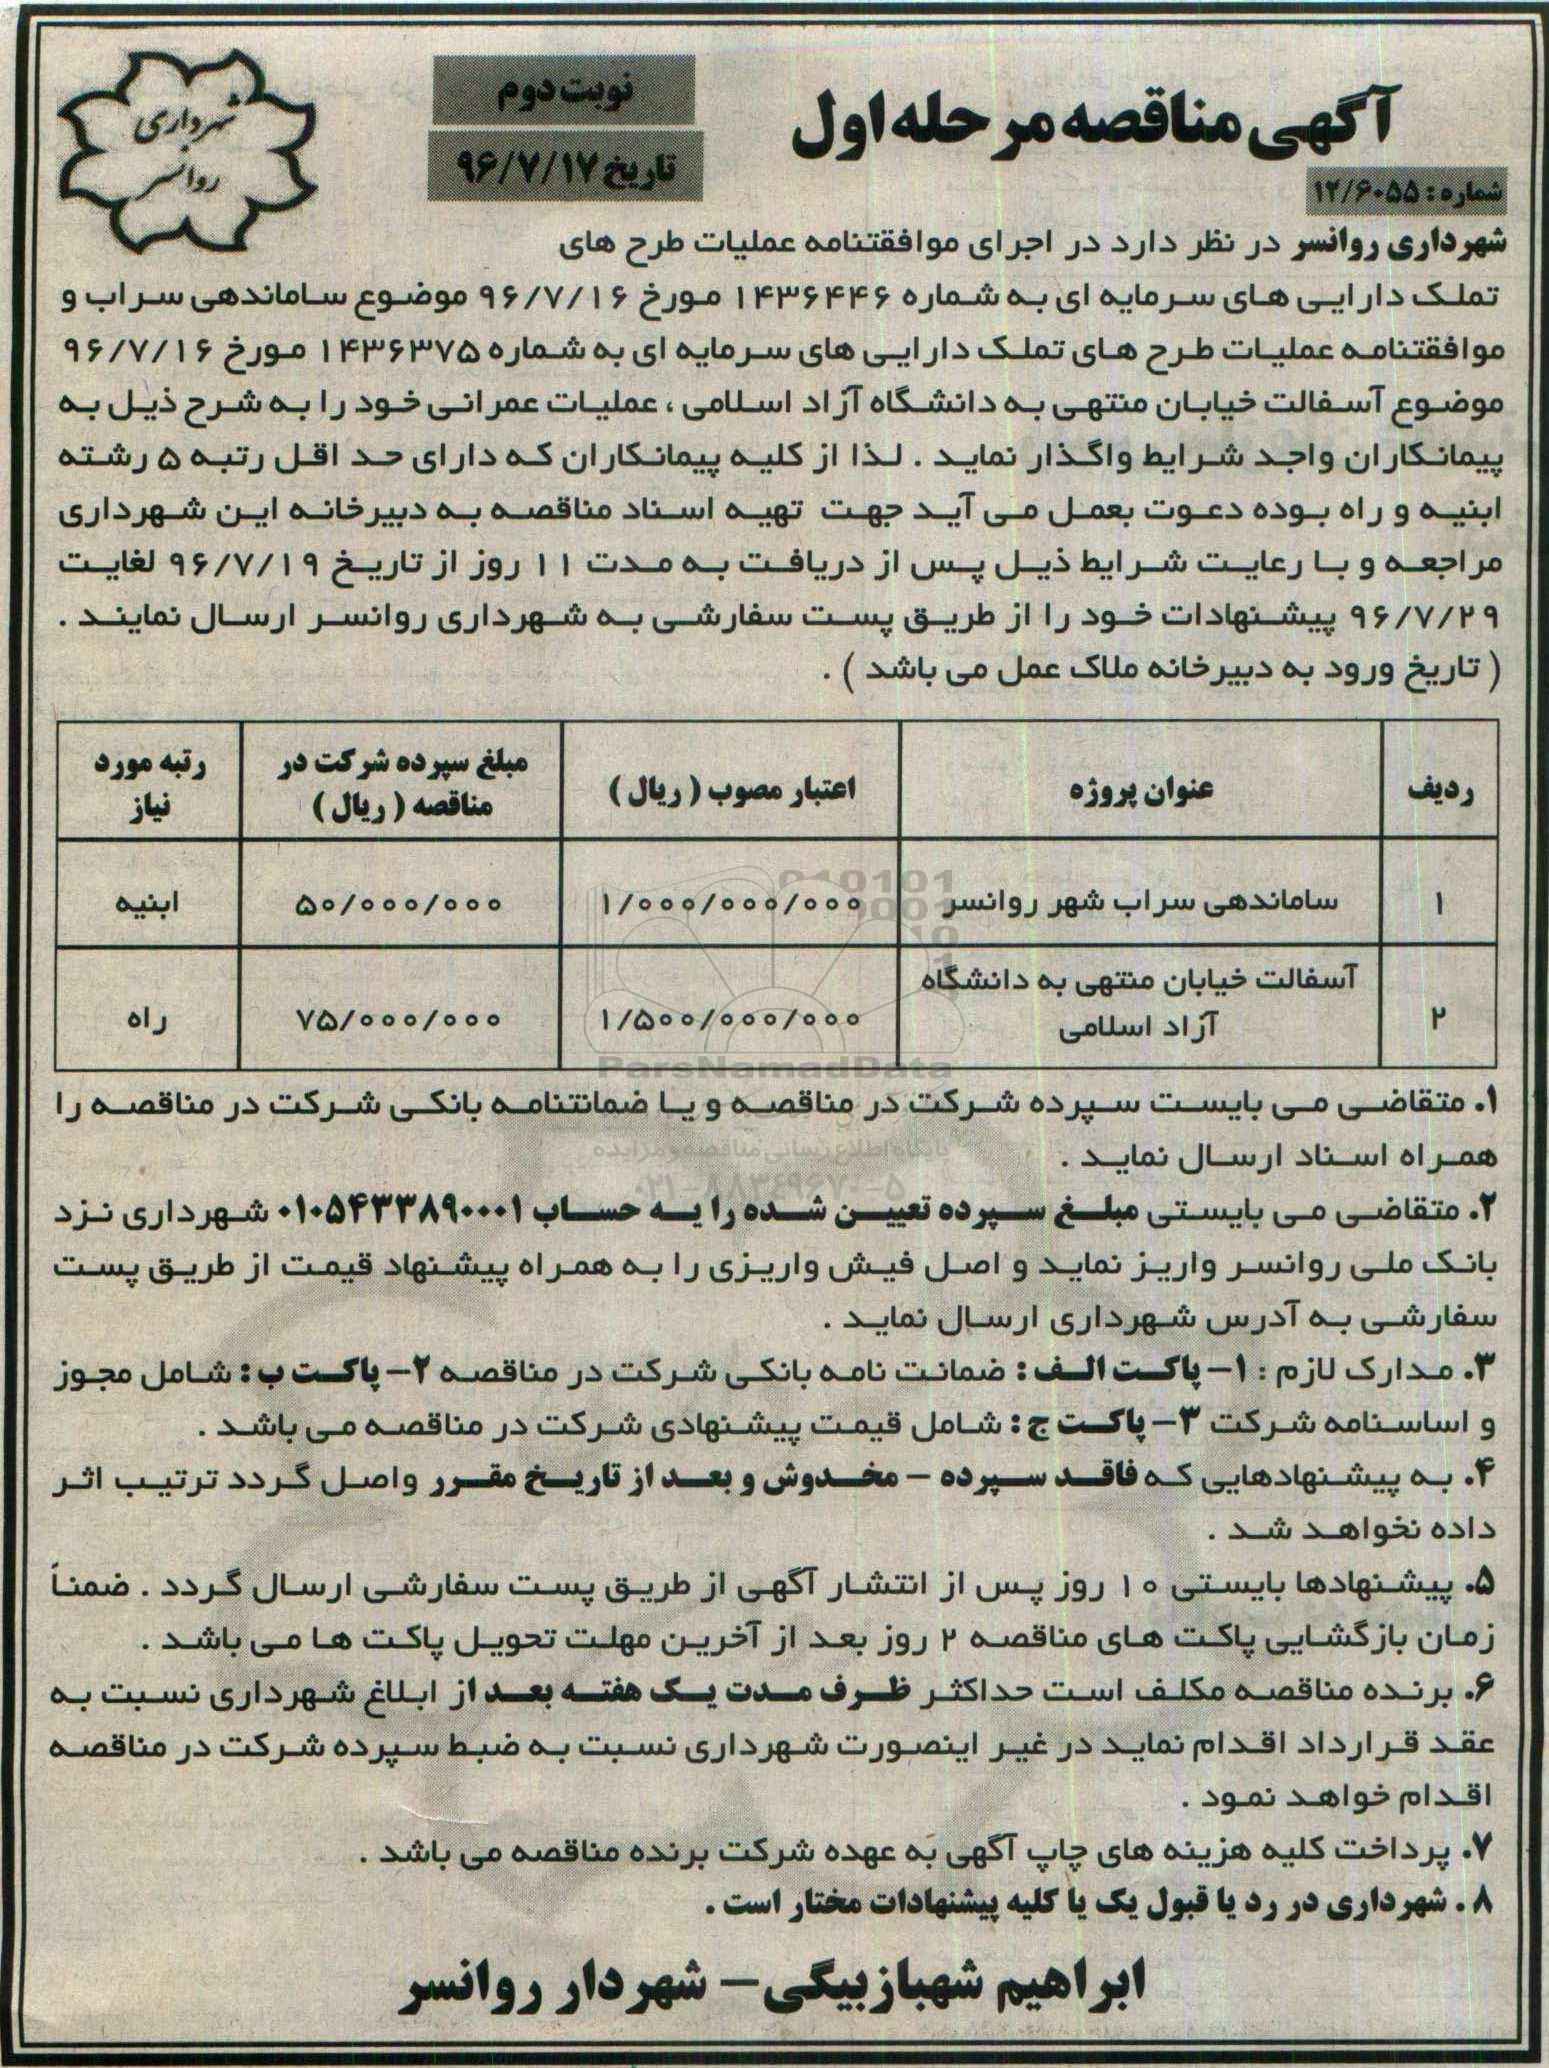 شهرداری
روانسر
نوبت دوم
تاریخ ۹۶/۷/۱۷
آگهی مناقصه مرحله اول
شماره : ۱۲/۶۰۵۵
شهرداری روانسر در نظر دارد در اجرای موافقتنامه عملیات طرح های
تملک دارایی های سرمایه ای به شماره ۱۴۳۶۴۴۶ مورخ ۹۶/۷/۱۶ موضوع ساماندهی سراب و
موافقتنامه عملیات طرح های تملک دارایی های سرمایه ای به شماره ۱۴۳۶۳۷۵ مورخ ۹۶/۷/۱۶
موضوع آسفالت خیابان منتهی به دانشگاه آزاد اسلامی ، عملیات عمرانی خود را به شرح ذیل به
پیمانکاران واجد شرایط واگذار نماید . لذا از کلیه پیمانکاران که دارای حد اقل رتبه ۵ رشته
ابنیه و راه بوده دعوت بعمل می آید جهت تهیه اسناد مناقصه به دبیرخانه این شهرداری
مراجعه و با رعایت شرایط ذیل پس از دریافت به مدت ۱۱ روز از تاریخ ۹۶/۷/۱۹ لغایت
۹۶/۷/۲۹ پیشنهادات خود را از طریق پست سفارشی به شهرداری روانسر ارسال نمایند .
( تاریخ ورود به دبیرخانه ملاک عمل می باشد ) .
ردیف عنوان پروژه اعتبار مصوب ( ریال ) مبلغ سپرده شرکت در مناقصه ( ریال ) رتبه مورد نیاز
۱ ساماندهی سراب شهر روانسر ۱/۰۰۰/۰۰۰/۰۰۰ ۵۰/۰۰۰/۰۰۰ ابنیه
۲ آسفالت خیابان منتهی به دانشگاه آزاد اسلامی ۱/۵۰۰/۰۰۰/۰۰۰ ۷۵/۰۰۰/۰۰۰ راه
ParsNamadData
۱. متقاضی می بایست سپرده شرکت در مناقصه و یا ضمانتنامه بانکی شرکت در مناقصه را
پایگاه اطلاع رسانی مناقصه و مزایده
همراه اسناد ارسال نماید .
۰۲۱-۸۸۳۴۹۶۷۰-۵
۲. متقاضی می بایستی مبلغ سپرده تعیین شده را به حساب ۰۱۰۵۴۳۳۸۹۰۰۰۱ شهرداری نزد
بانک ملی روانسر واریز نماید و اصل فیش واریزی را به همراه پیشنهاد قیمت از طریق پست
سفارشی به آدرس شهرداری ارسال نماید .
۳. مدارک لازم : ۱- پاکت الف : ضمانت نامه بانکی شرکت در مناقصه ۲- پاکت ب : شامل مجوز
و اساسنامه شرکت ۳- پاکت ج : شامل قیمت پیشنهادی شرکت در مناقصه می باشد .
۴. به پیشنهادهایی که فاقد سپرده - مخدوش و بعد از تاریخ مقرر واصل گردد ترتیب اثر
داده نخواهد شد .
۵. پیشنهادها بایستی ۱۰ روز پس از انتشار آگهی از طریق پست سفارشی ارسال گردد . ضمناً
زمان بازگشایی پاکت های مناقصه ۲ روز بعد از آخرین مهلت تحویل پاکت ها می باشد .
۶. برنده مناقصه مکلف است حداکثر ظرف مدت یک هفته بعد از ابلاغ شهرداری نسبت به
عقد قرارداد اقدام نماید در غیر اینصورت شهرداری نسبت به ضبط سپرده شرکت در مناقصه
اقدام خواهد نمود .
۷. پرداخت کلیه هزینه های چاپ آگهی به عهده شرکت برنده مناقصه می باشد .
۸ . شهرداری در رد یا قبول یک یا کلیه پیشنهادات مختار است .
ابراهیم شهبازبیگی - شهردار روانسر